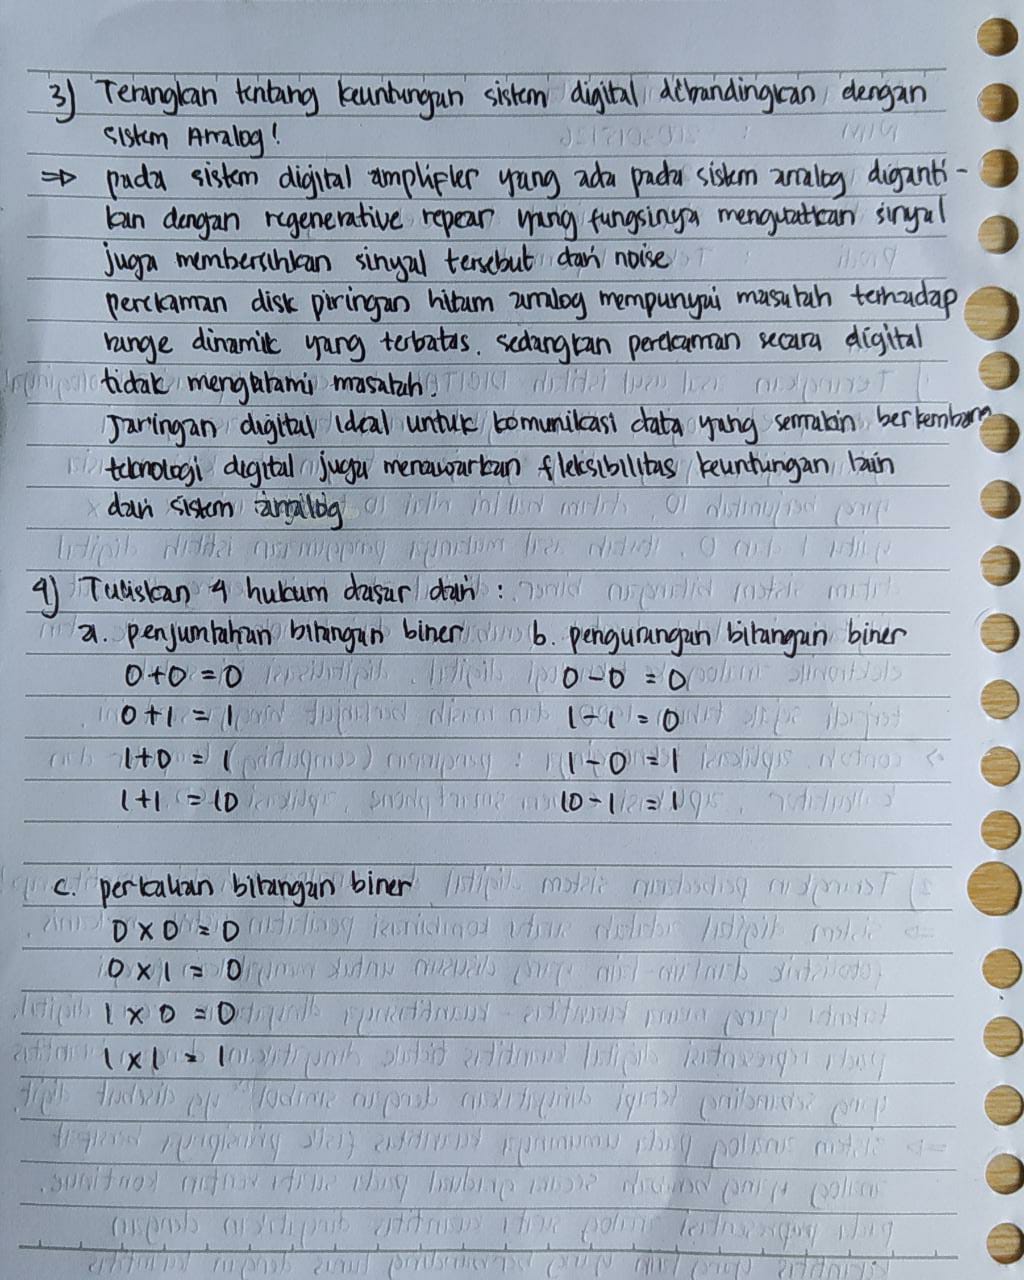 3) Terangkan tentang keuntungan sistem digital dibandingkan dengan
sistem Analog!
⇒ pada sistem digital amplifier yang ada pada sistem analog diganti-
kan dengan regenerative repear yang fungsinya menguatkan sinyal
juga membersihkan sinyal tersebut dari noise
perekaman disk piringan hitam analog mempunyai masalah terhadap
range dinamik yang terbatas. sedangkan perekaman secara digital
tidak mengalami masalah.
Jaringan digital ideal untuk komunikasi data yang semakin berkembang
teknologi digital juga menawarkan fleksibilitas keuntungan lain
dari sistem analog
4) Tuliskan 4 hukum dasar dari :
a. penjumlahan bilangan biner b. pengurangan bilangan biner
0+0 = 0 0-0 = 0
0+1 = 1 1-1 = 0
1+0 = 1 1-0 = 1
1+1 = 10 10-1 = 1
c. perkalian bilangan biner
0 x 0 = 0
0 x 1 = 0
1 x 0 = 0
1 x 1 = 1